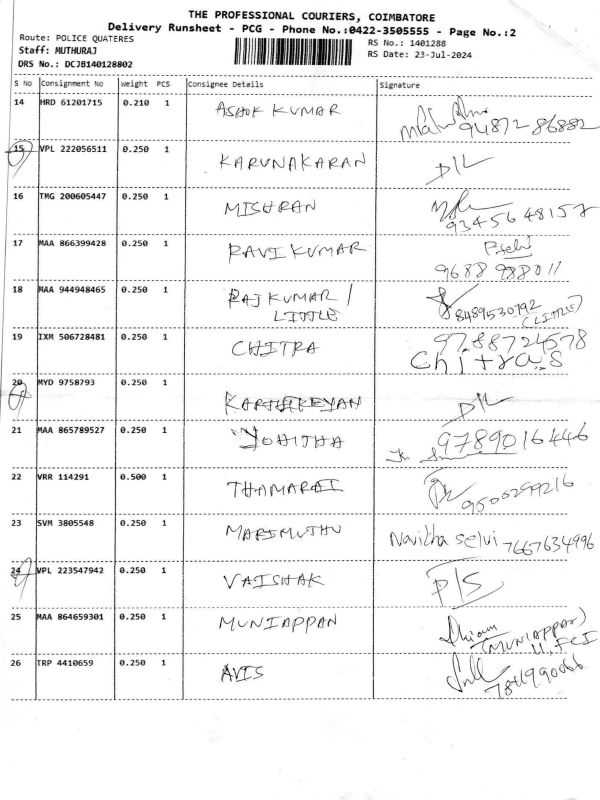 THE PROFESSIONAL COURIERS, COIMBATORE
Delivery Runsheet - PCG - Phone No.:0422-3505555 - Page No.:2
Route: POLICE QUATERES
Staff: MUTHURAJ
DRS No.: DCJB140128802
RS No.: 1401288
RS Date: 23-Jul-2024
S No Consignment No Weight PCS Consignee Details Signature
14 HRD 61201715 0.210 1 ASHOK KUMAR 94872 86882
15 VPL 222056511 0.250 1 KARUNAKARAN D/L
16 TMG 200605447 0.250 1 MISHRAN
9345648157
17 MAA 866399428 0.250 1 RAVI KUMAR
9688 988011
18 MAA 944948465 0.250 1 RAJ KUMAR /
LITTLE 8489530792
(LITTLE)
19 IXM 506728481 0.250 1 CHITRA 9788724578
Chitra.S
20 MYD 9758793 0.250 1 KARTHIKEYAN D/L
21 MAA 865789527 0.250 1 YOHITHA 9789016446
22 VRR 114291 0.500 1 THAMARAI 9500299216
23 SVM 3805548 0.250 1 MARIMUTHU Navitha Selvi 7667634996
24 VPL 223547942 0.250 1 VAISHAK D/S
25 MAA 864659301 0.250 1 MUNIAPPAN
(MUNIAPPAN)
26 TRP 4410659 0.250 1 AVIS